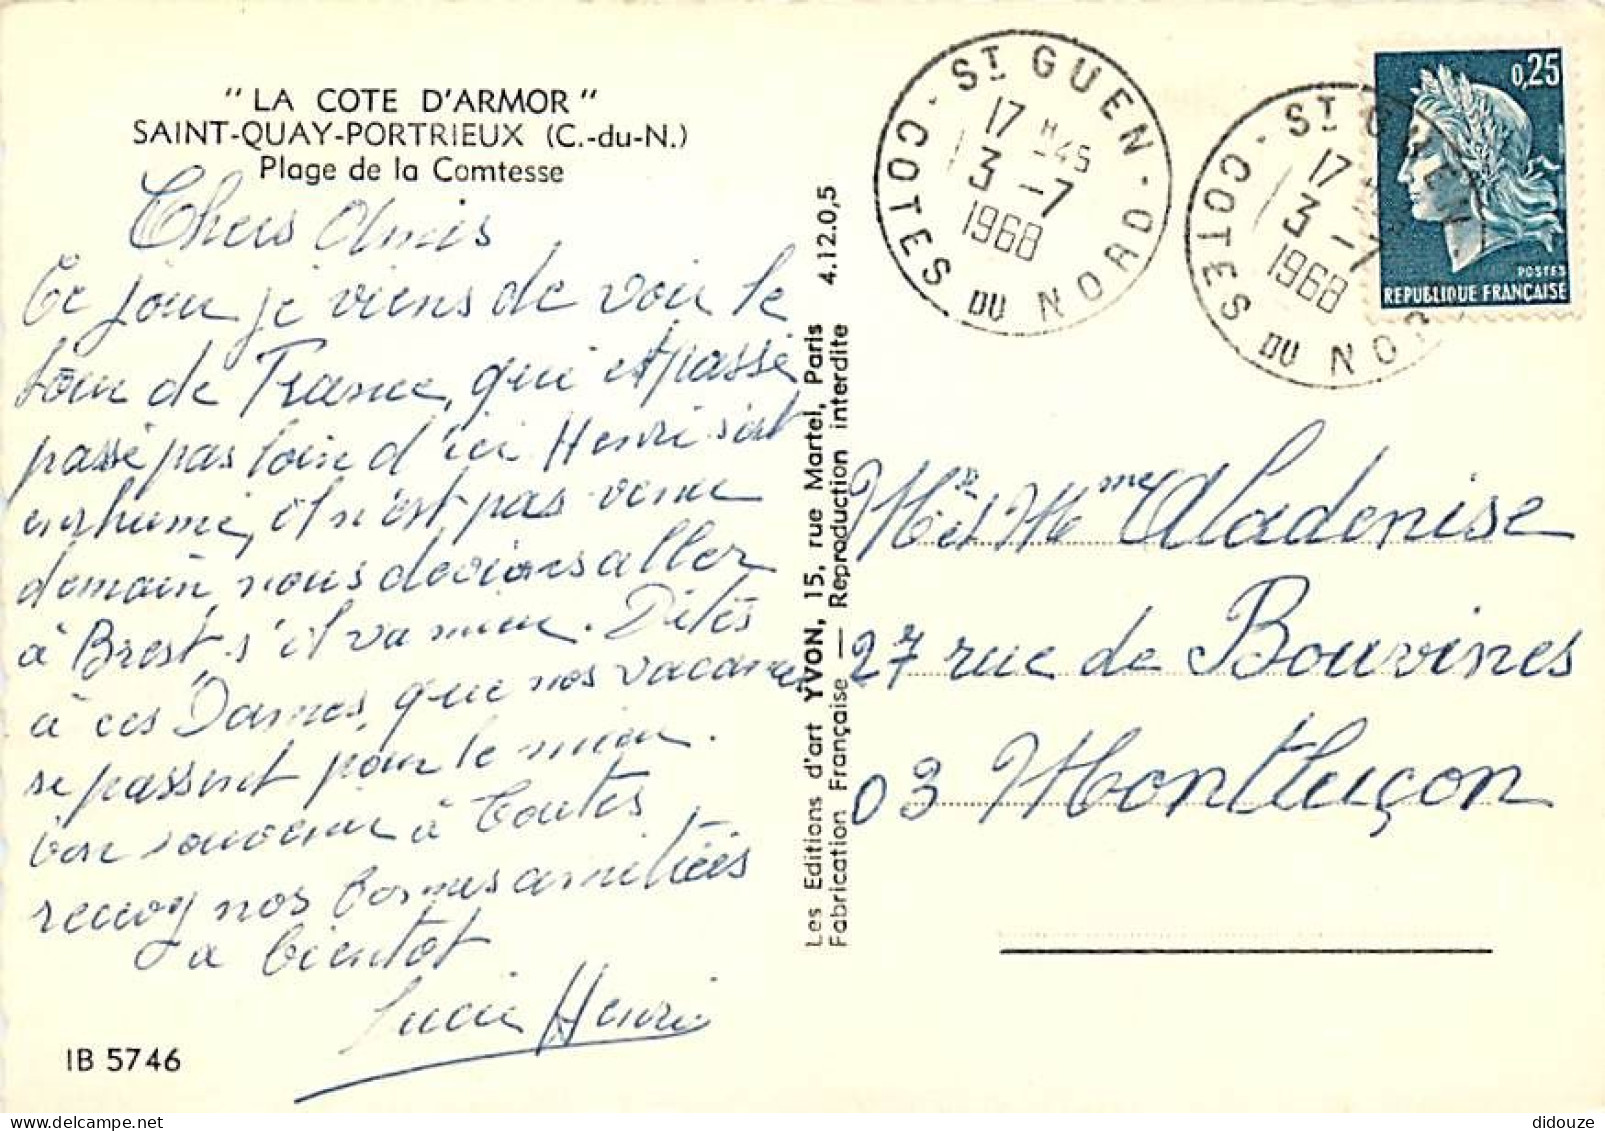 "LA COTE D'ARMOR"
SAINT-QUAY-PORTRIEUX (C.-du-N.)
Plage de la Comtesse
Chers Amis
Ce jour je viens de voir le
tour de France, qui est passé
passé pas loin d'ici Henri s'est
enrhumé, il n'est pas venu
demain, nous devions aller
à Brest s'il va mieux. Dites
à ces Dames, que nos vacances
se passent pour le mieux.
bon souvenir à toutes
recevez nos bonnes amitiées
a bientot
Lucie Henri
IB 5746
Les Editions d'art YVON, 15, rue Martel, Paris 4.12.0,5
Fabrication Française — Reproduction interdite
ST GUEN
17 H 45
3 - 7
1968
COTES DU NORD
ST GUEN
17
3 - 7
1968
COTES DU NORD
0,25
POSTES
REPUBLIQUE FRANÇAISE
Mr et Mme Aladenise
27 rue de Bouvines
03 Montluçon
didouze